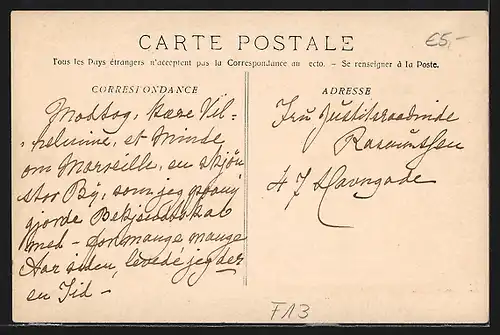 €5,-
CARTE POSTALE
Tous les Pays étrangers n'acceptent pas la Correspondance au ecto. - Se renseigner à la Poste.
CORRESPONDANCE
Modtag, kære Vil-
helmine, et Minde
om Marseille, en skjøn
stor By, som jeg paany
gjorde Bekjendtskab
med - for mange, mange
Aar siden, levede jeg der
en Tid -
ADRESSE
Fru Justitsraadinde
47 Havngade
F13